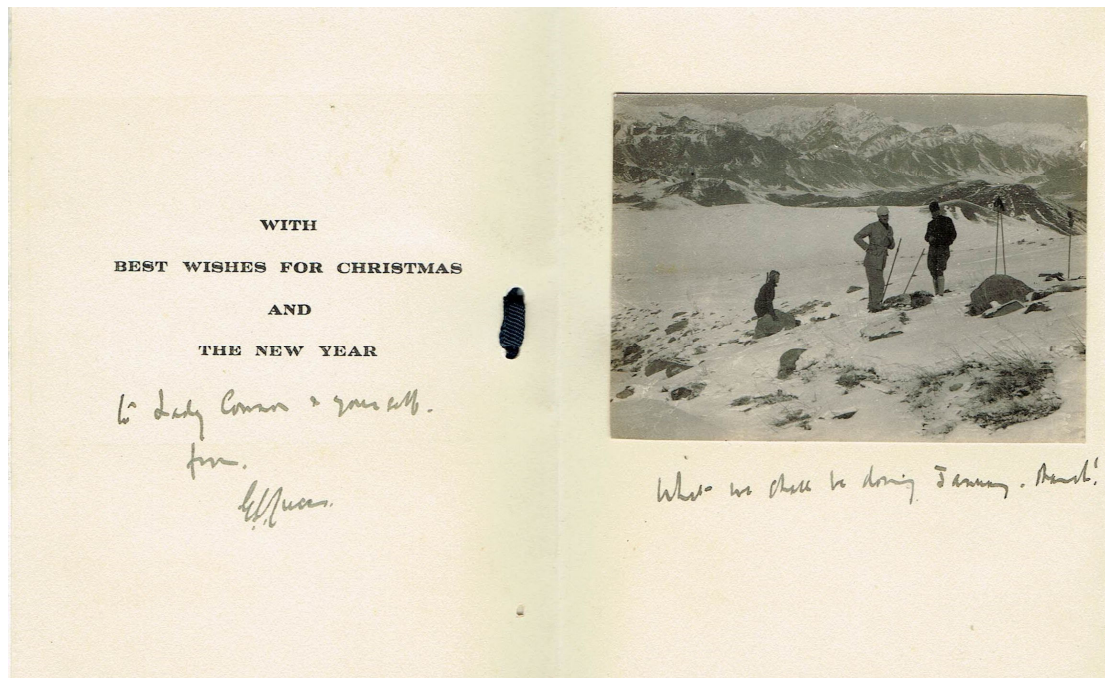 WITH
BEST WISHES FOR CHRISTMAS
AND
THE NEW YEAR
to Lady Connor & yourself.
from.
What we shall be doing January. March!